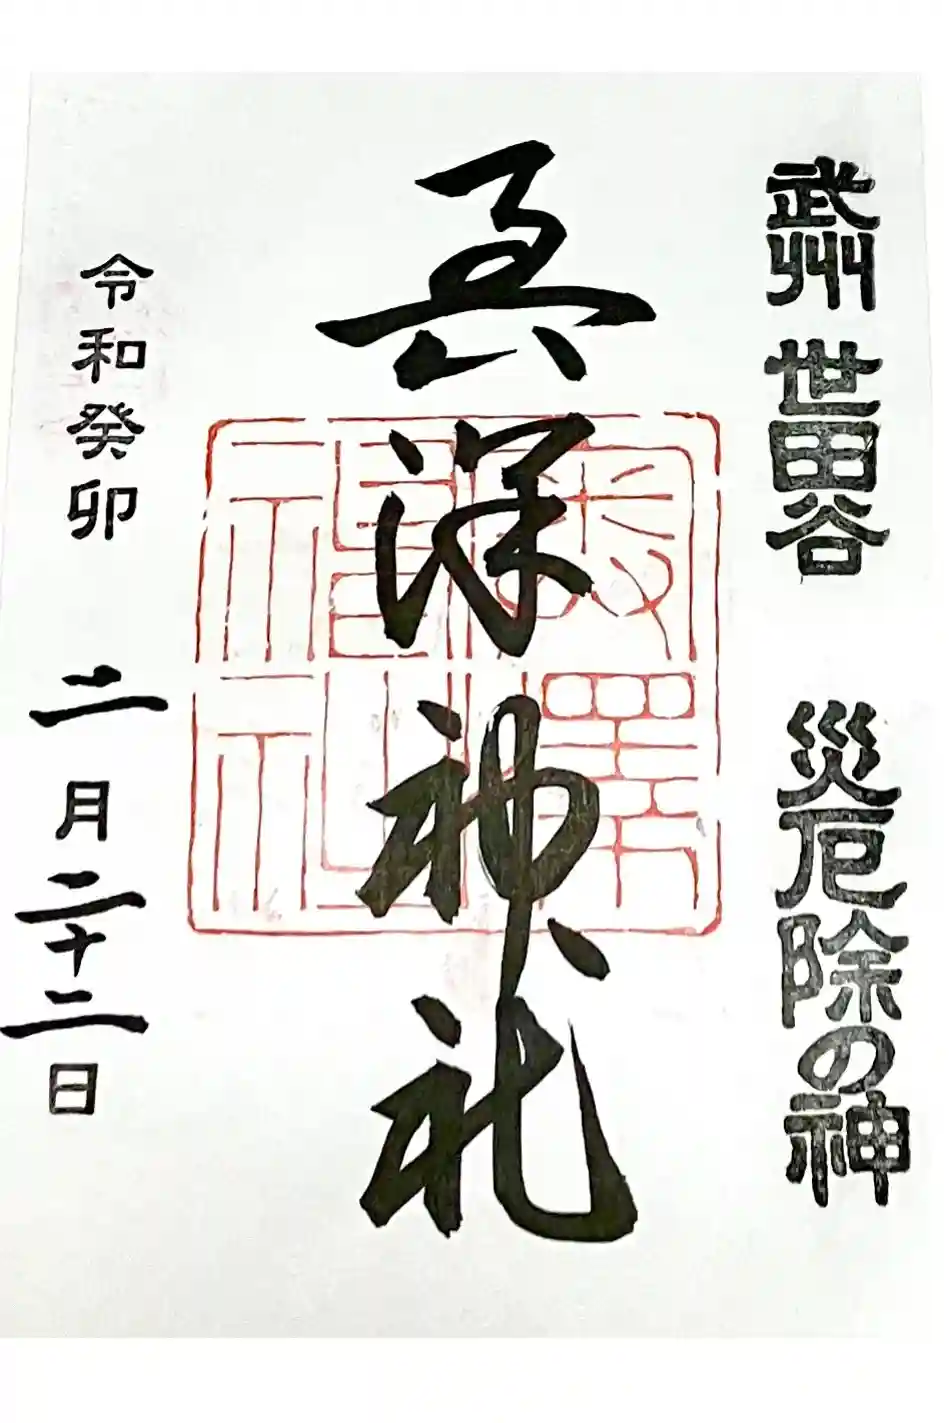 武州 世田谷 災厄除の神
奥澤神社
奥澤
神社
令和癸卯 二月二十二日